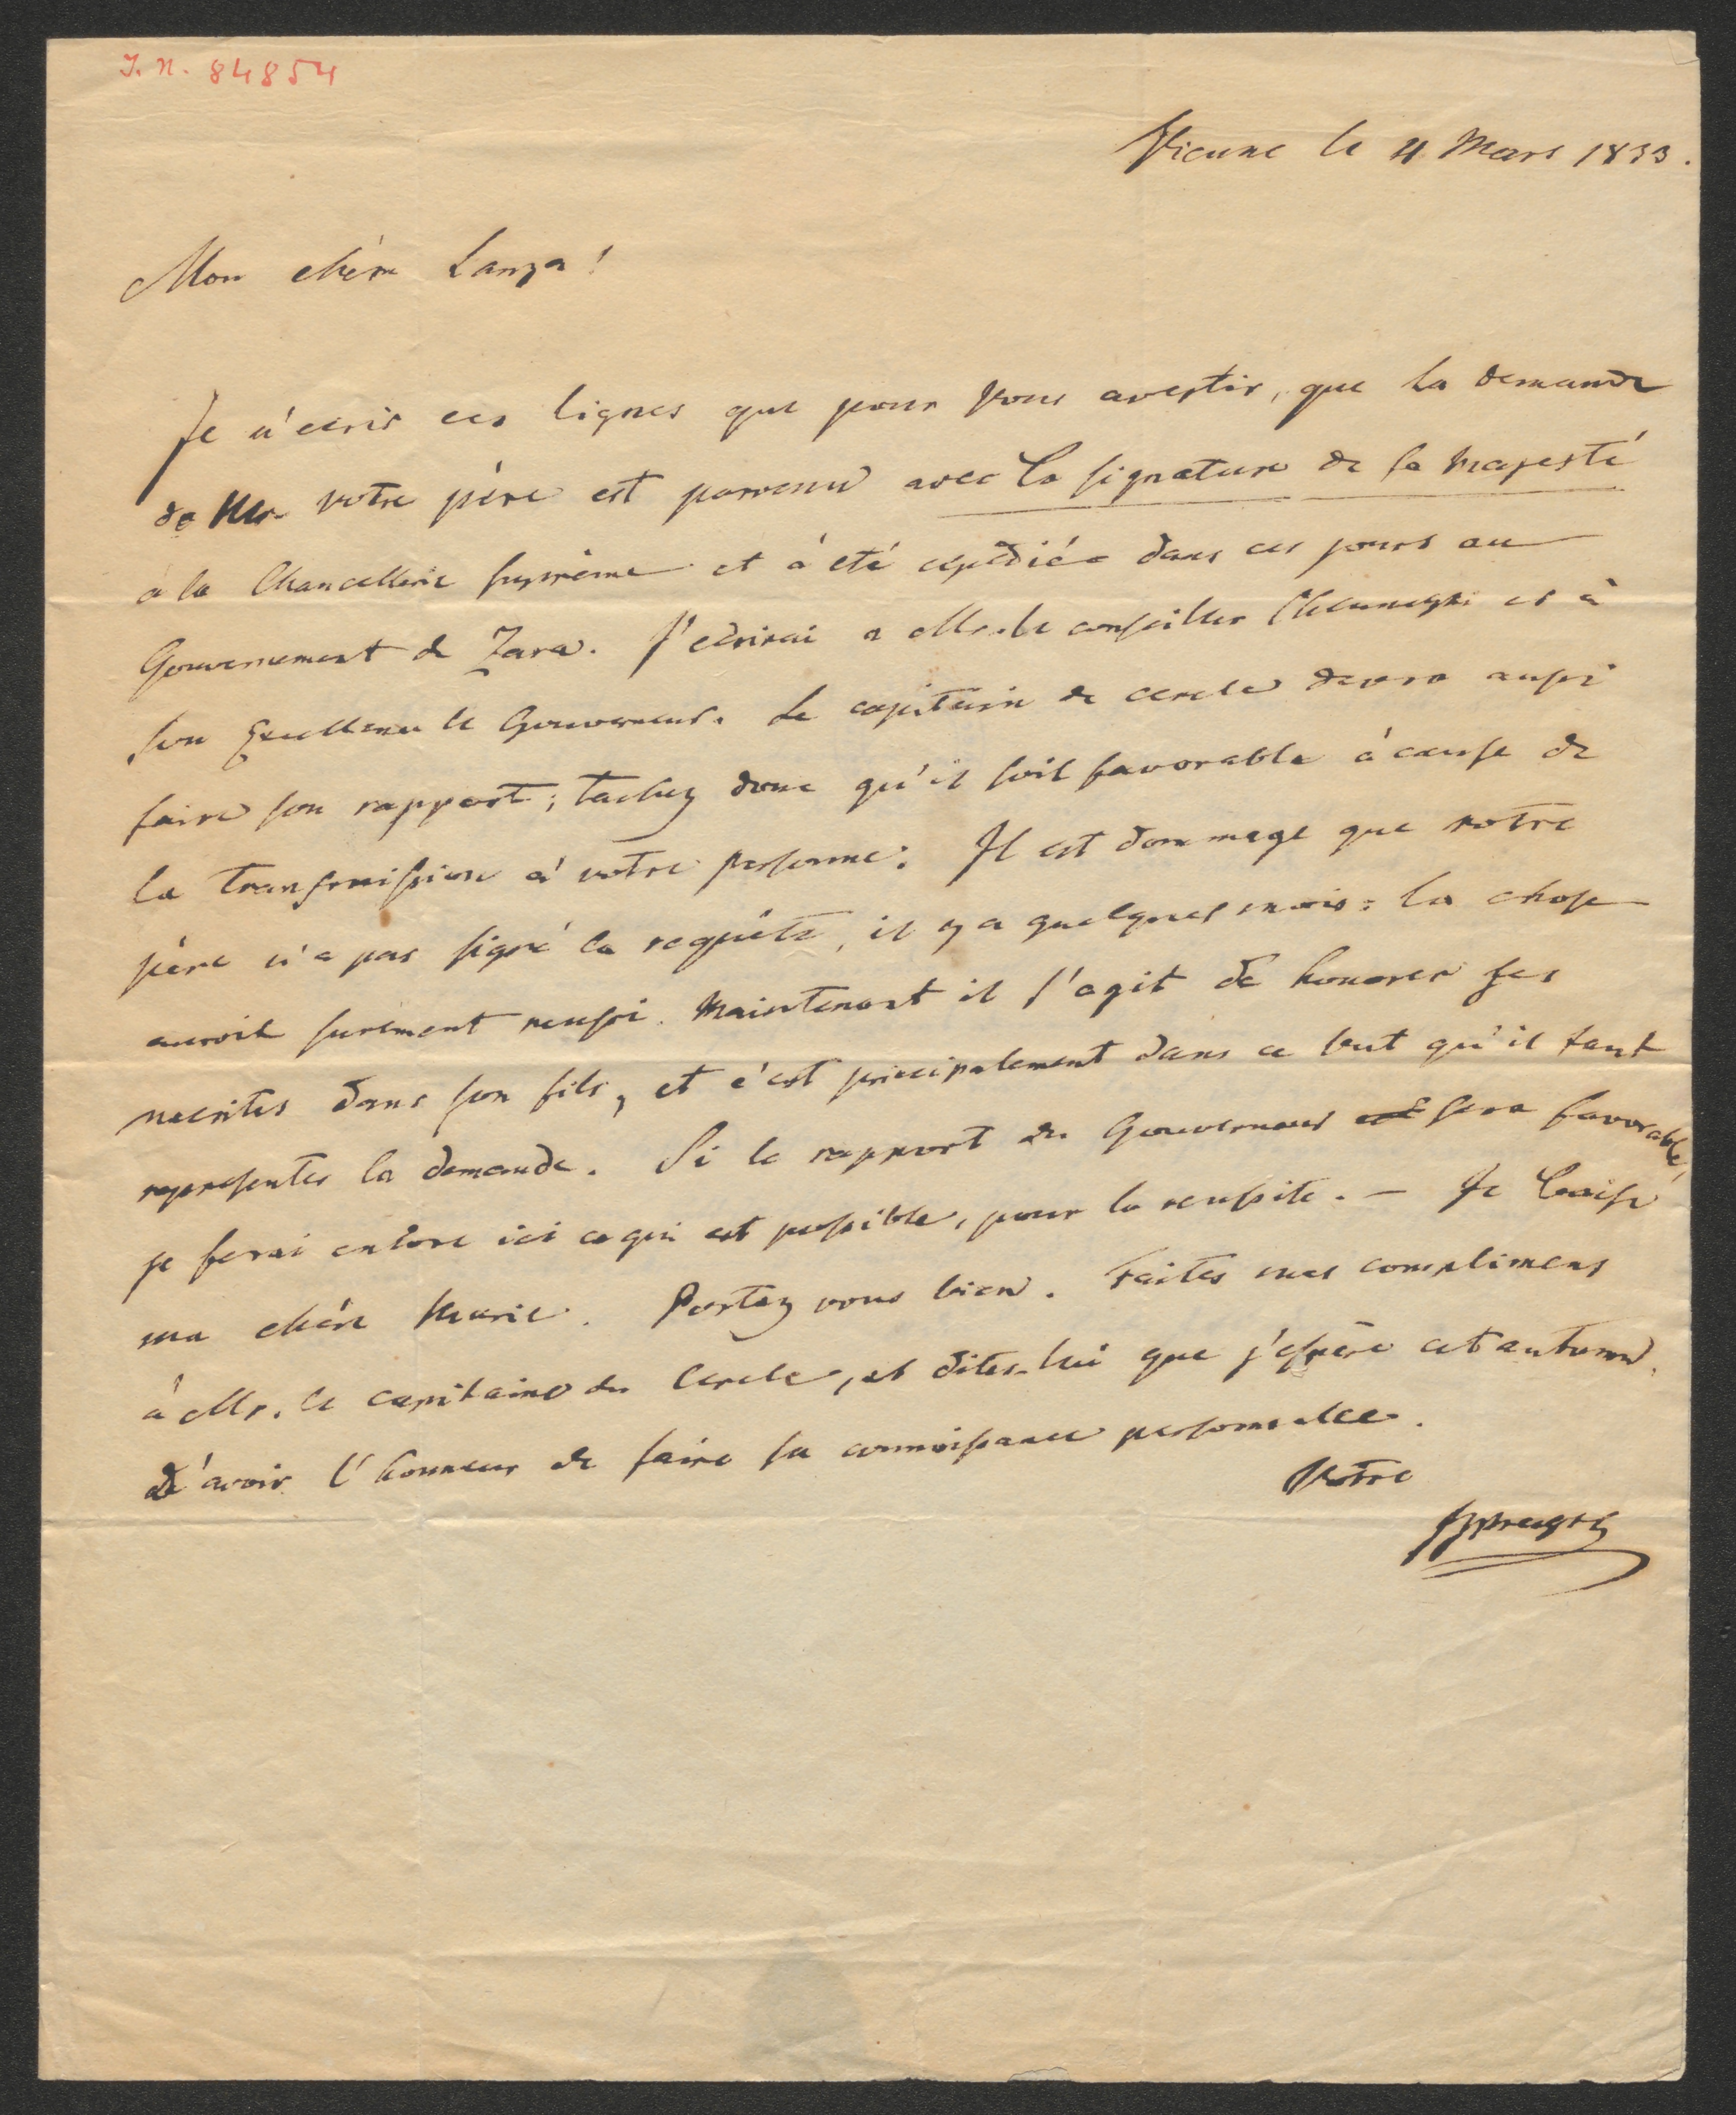 I. N. 84854
Vienne le 4 Mars 1833.
Mon chèr Lanza!
Je n'ecris ces lignes que pour Vous avertir, que la demande
de Mr votre père est parvenu avec la signature de sa Majesté
à la Chancellerie suprème et à eté expediée dans ces jours au
Gouvernement de Zara. J'ecrirai a Mr. le conseiller et à
son Excellence le Gouverneur. Le capitain de cercle devra aussi
faire son rapport; tachez donc qu'il soit favorable à cause de
la transmission à votre personne. Il est dommage que votre
père n'a pas signé la requête, il y a quelques mois: la chose
auroit surement reussi. Maintenant il s'agit de honorer ses
merites dans son fils, et c'est principalement dans ce but qu'il faut
representer la demande. Si le rapport du Gouverneur sera favorable,
je ferai encore ici ce qui est possible, pour la reussite. – Je baise
ma chère Marie. Portez vous bien. Faites mes complimens
à Mr. le capitaine du Cercle, et dites-lui que j'espère cet automne,
d'avoir l'honneur de faire sa connoissance personnelle.
Votre